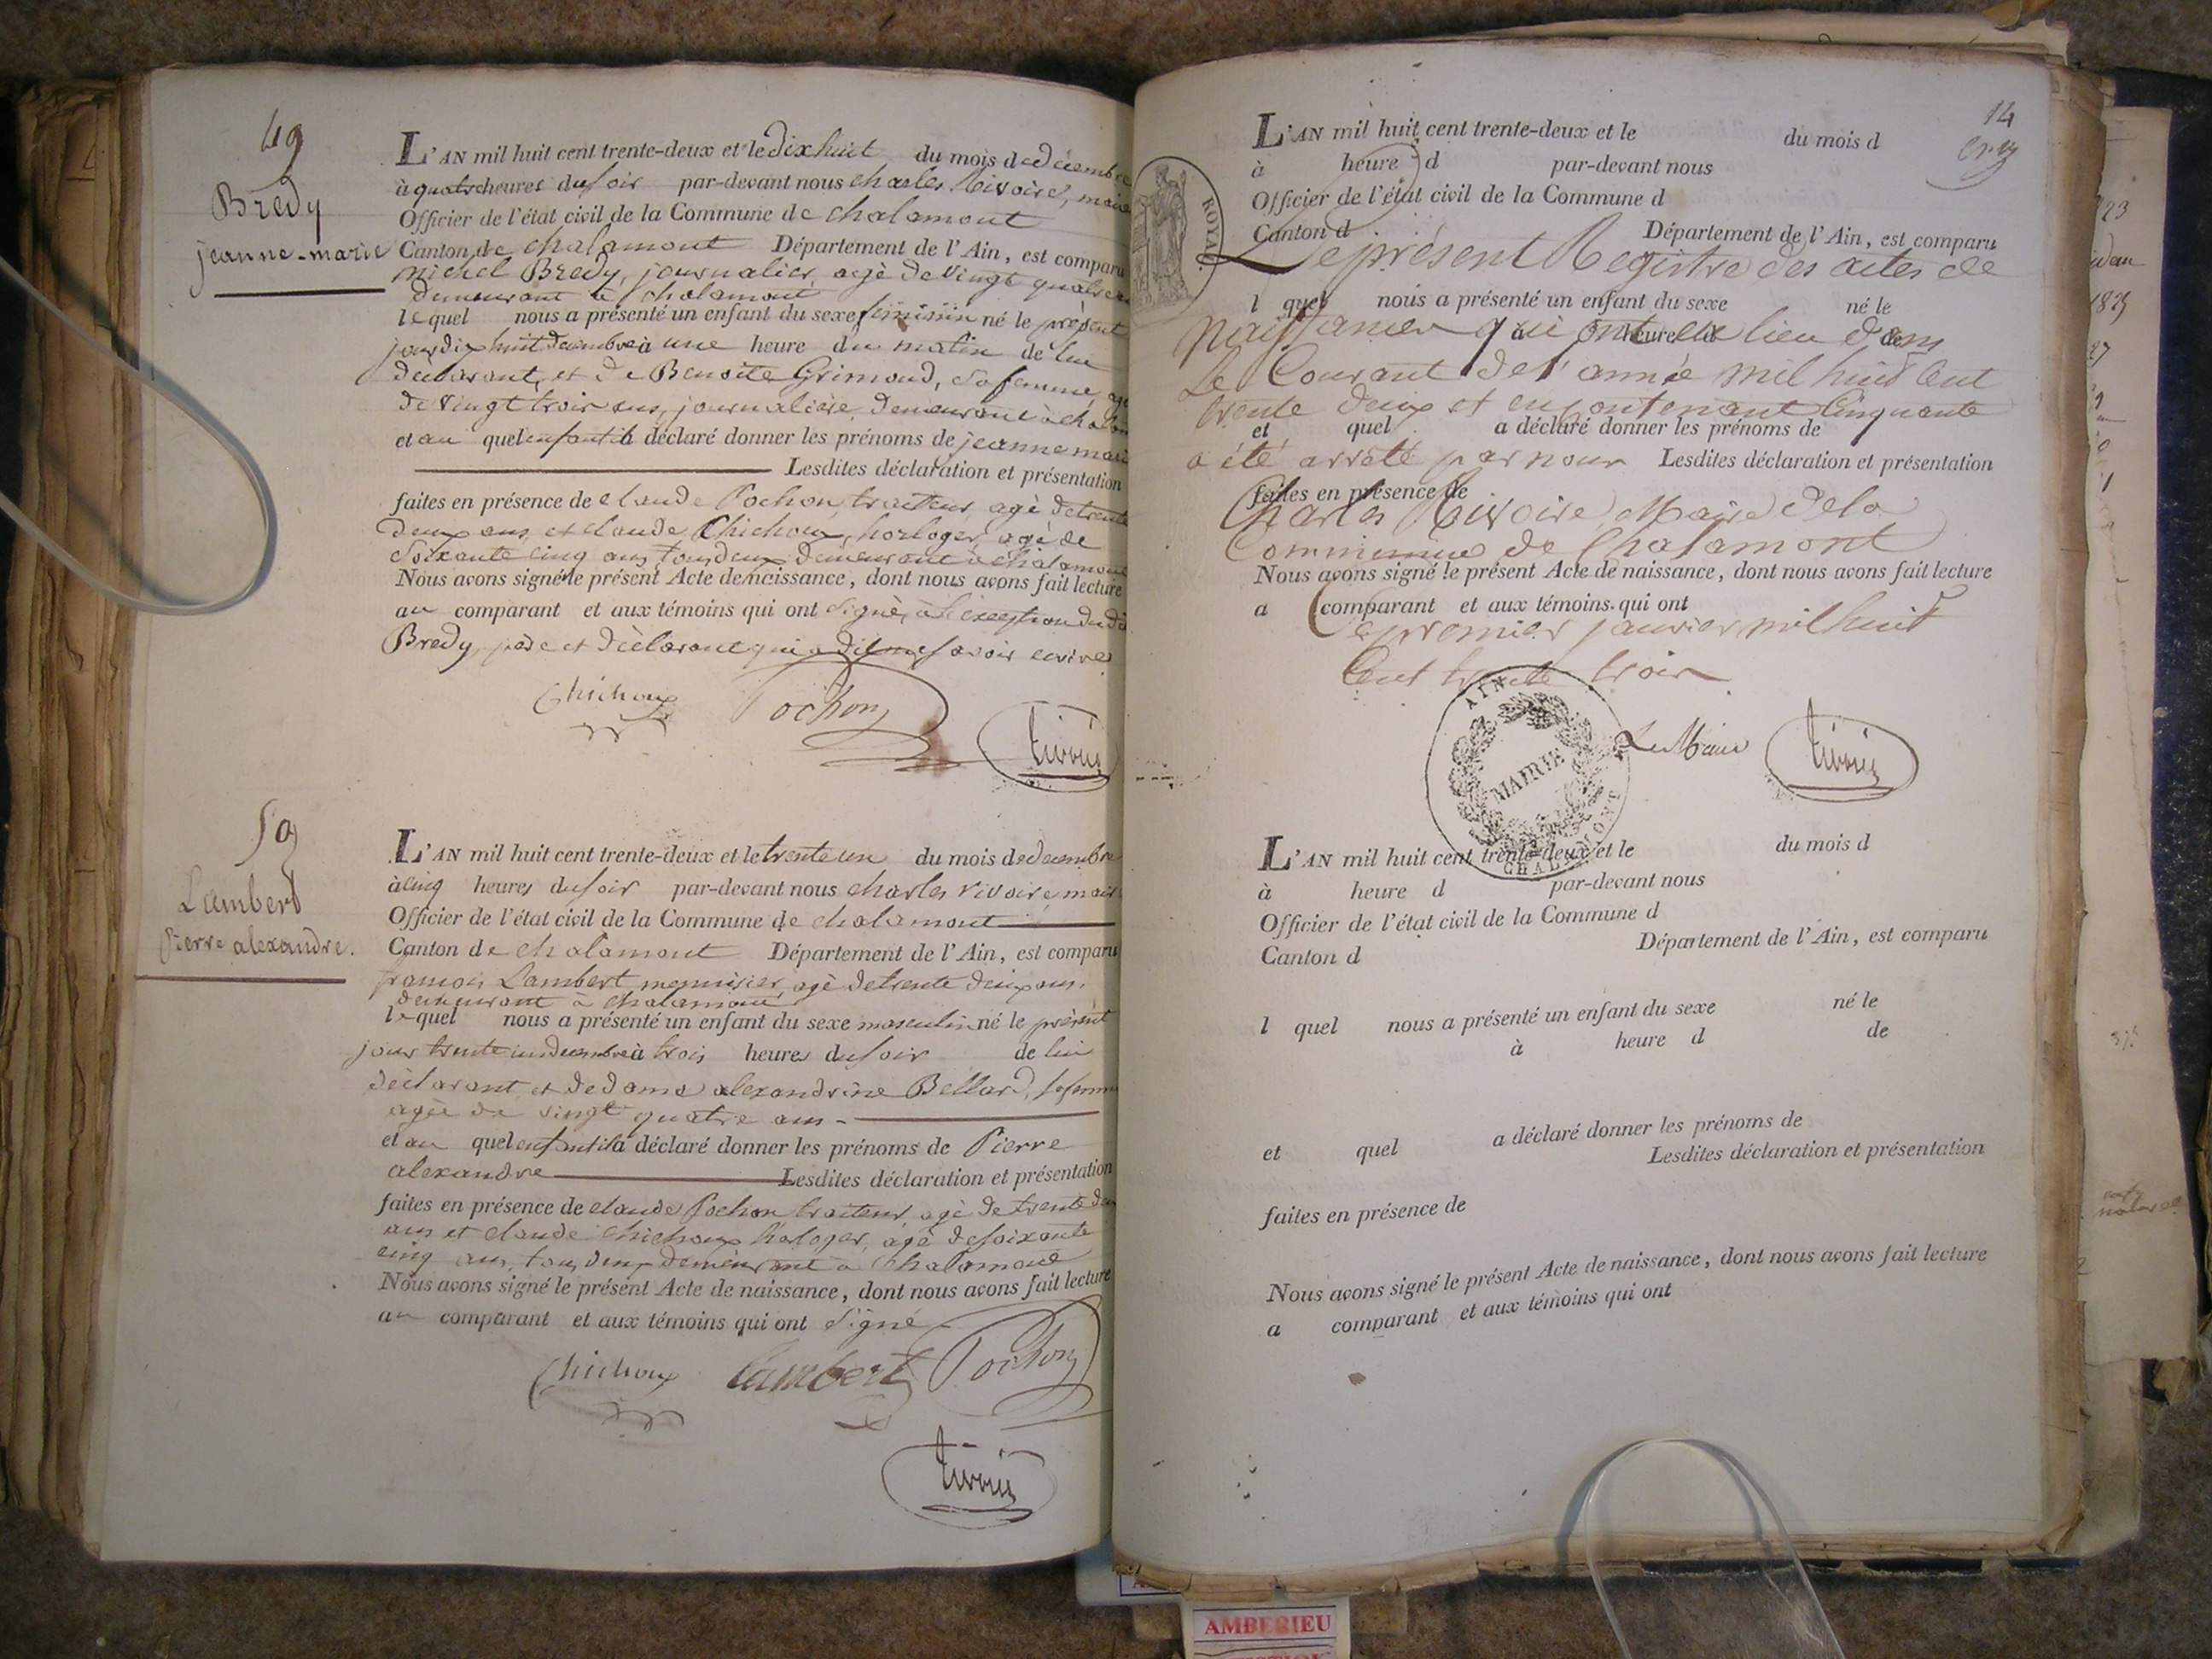 49
Bredy
jeanne-marie
L'AN mil huit cent trente-deux et le dix huit du mois de décembre
à quatre heures du soir par-devant nous charles Rivoire, maire
Officier de l'état civil de la Commune de chalamont
Canton de chalamont Département de l'Ain, est comparu
michel Bredy, journalier, agé de vingt quatre
demeurant à chalamont
lequel nous a présenté un enfant du sexe féminin né le présent
jour dix huit décembre à une heure du matin de lui
déclarant, et de Benoite Grimoud, sa femme, agé
de vingt trois ans, journalière, demeurant à
et au quel enfant il a déclaré donner les prénoms de jeanne marie
Lesdites déclaration et présentation
faites en présence de claude Pochon, traiteur, agé de trente
deux ans, et claude Chichoux, horloger, agé de
soixante cinq ans, tous deux demeurant à chalamont
Nous avons signé le présent Acte de naissance, dont nous avons fait lecture
au comparant et aux témoins qui ont signé, à l'exception du dit
Bredy, père et déclarant qui a dit ne savoir ecrire
Chichoux Pochon
50
Lambert
Pierre alexandre.
L'AN mil huit cent trente-deux et le trente un du mois de décembre
à cinq heures du soir par-devant nous charles rivoire maire
Officier de l'état civil de la Commune de chalamont
Canton de chalamont Département de l'Ain, est comparu
francois Lambert menuisier, agé de trente deux ans.
demeurant à chalamont
lequel nous a présenté un enfant du sexe masculin né le présent
jour trente un décembre à trois heures du soir de lui
déclarant et de dame alexandrine Bellard, sa femme
agée de vingt quatre ans
et au quel enfant il a déclaré donner les prénoms de Pierre
alexandre Lesdites déclaration et présentation
faites en présence de claude Pochon, traiteur, agé de trente deux
ans et claude Chichoux horloger, agé de soixante
cinq ans, tous deux demeurant à Chalamont
Nous avons signé le présent Acte de naissance, dont nous avons fait lecture
au comparant et aux témoins qui ont signé
Chichoux Lambert Pochon
14
ROYAL
L'AN mil huit cent trente-deux et le du mois d
à heure d par-devant nous
Officier de l'état civil de la Commune d
Canton d Département de l'Ain, est comparu
Le présent Registre des actes de
l quel nous a présenté un enfant du sexe né le
à heure d de
naissances qui ont eu lieu dans
Le Courant de l'année mil huit Cent
trente deux et en contenant Cinquante
et quel a déclaré donner les prénoms de
a été arrêté par nous Lesdites déclaration et présentation
faites en présence de
Charles Rivoire Maire de la
Commune de Chalamont
Nous avons signé le présent Acte de naissance, dont nous avons fait lecture
a comparant et aux témoins qui ont
Ce premier janvier mil huit
Cent trente trois
Le Maire
AIN
MAIRIE
CHALAMONT
L'AN mil huit cent trente-deux et le du mois d
à heure d par-devant nous
Officier de l'état civil de la Commune d
Canton d Département de l'Ain, est comparu
l quel nous a présenté un enfant du sexe né le
à heure d de
et quel a déclaré donner les prénoms de
Lesdites déclaration et présentation
faites en présence de
Nous avons signé le présent Acte de naissance, dont nous avons fait lecture
a comparant et aux témoins qui ont
AMBERIEU